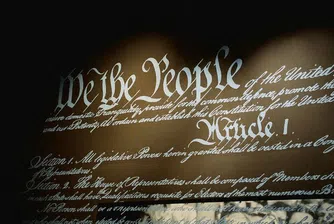 We the People of the United
insure domestic Tranquility, provide for the common defence, promote the
and our Posterity, do ordain and establish this Constitution for the United
Article I.
Section 1. All legislative Powers herein granted shall be vested in a Con
of Representatives.
Section 2. The House of Representatives shall be composed of Members chosen
State shall have Qualifications requisite for Electors of the most numerous
No Person shall be a